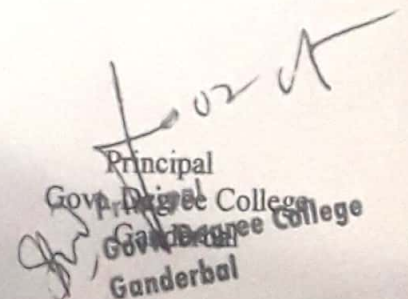 Principal
Govt. Degree College
Ganderbal
Principal
Govt. Degree College
Ganderbal